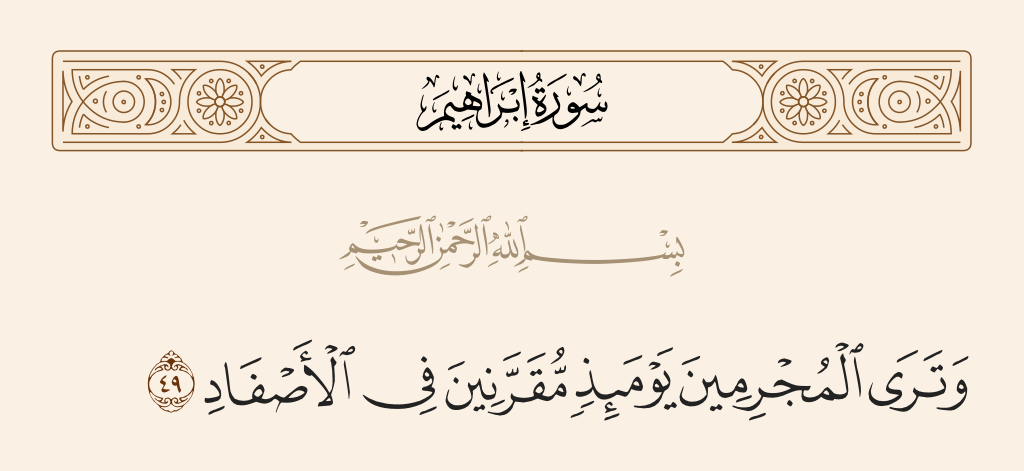 سُورَةُ إِبْرَاهِيمَ
بِسْمِ ٱللَّهِ ٱلرَّحْمَٰنِ ٱلرَّحِيمِ
وَتَرَى ٱلْمُجْرِمِينَ يَوْمَئِذٍ مُّقَرَّنِينَ فِى ٱلْأَصْفَادِ ٤٩